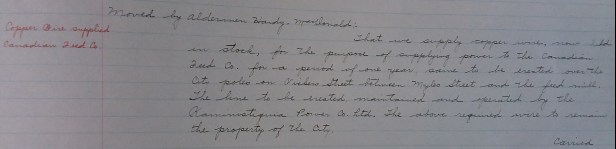 Moved by Aldermen Handy - McDonald:-
Copper Wire supplied
Canadian Feed Co.
That we supply copper wire, now held
in stock, for the purpose of supplying power to the Canadian
Feed Co. for a period of one year, same to be erected over the
City poles on Vickers Street between Myles Street and the feed mill.
The line to be erected maintained and operated by the
Kaministiquia Power Co. Ltd. The above required wire to remain
the property of the City.
Carried